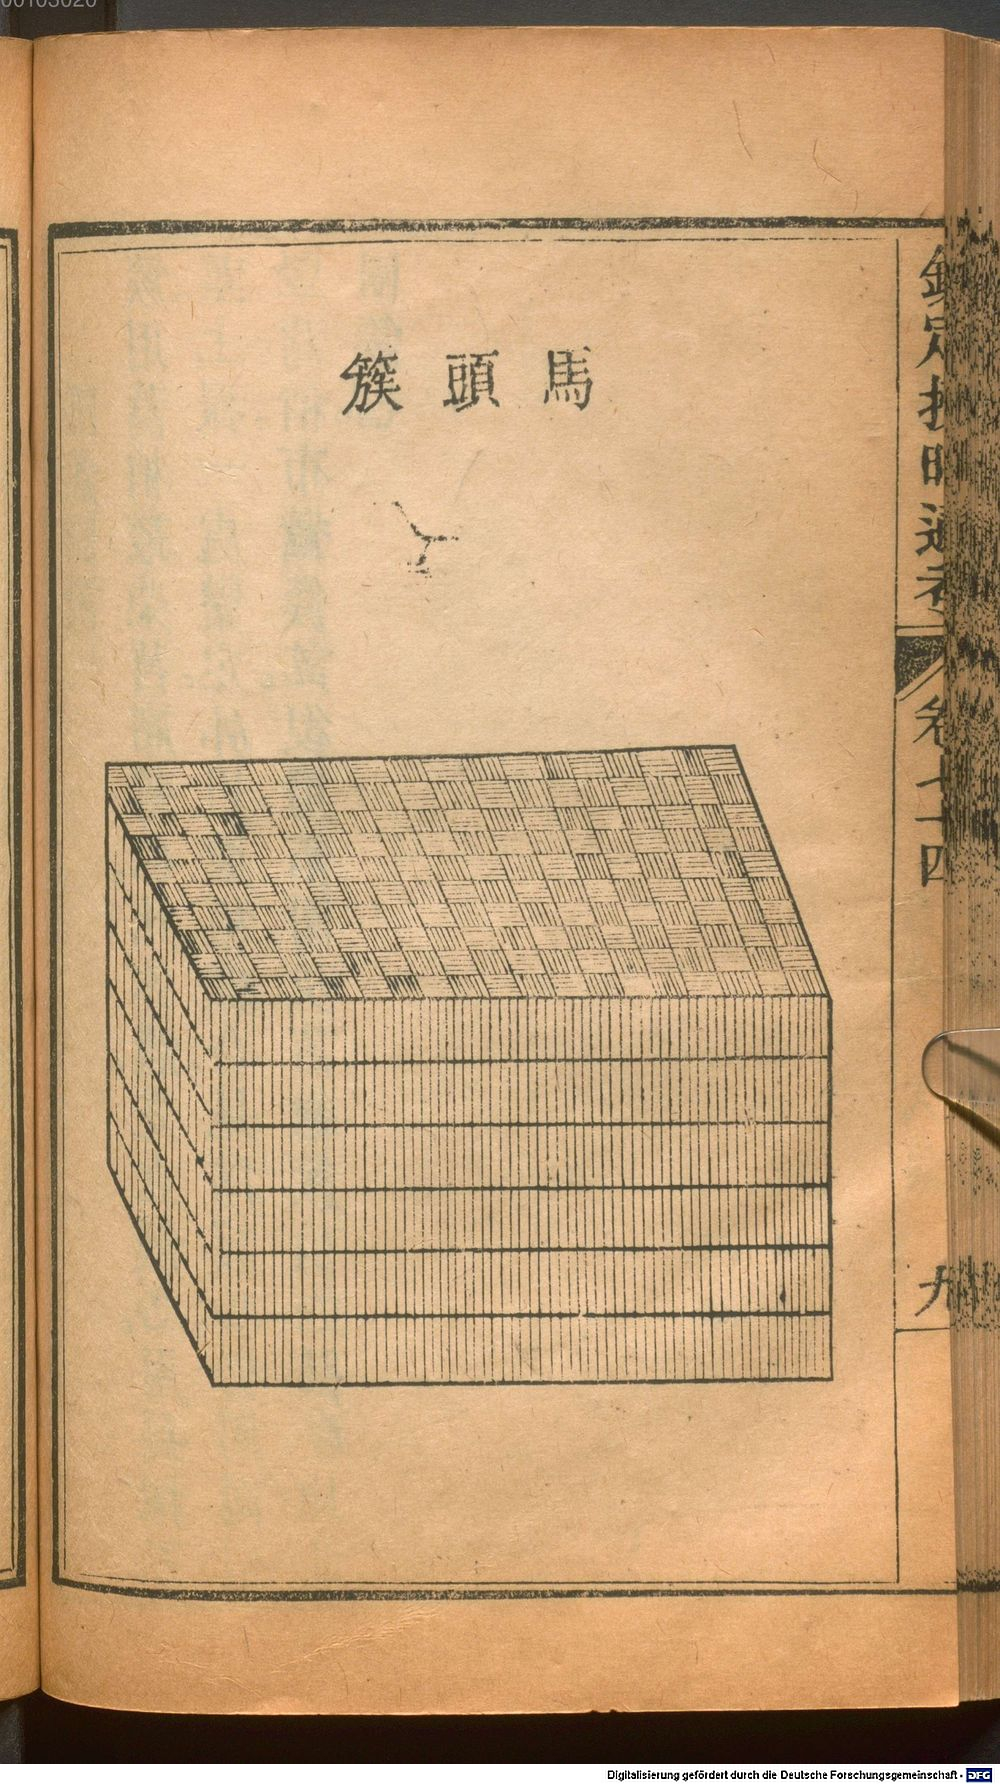 馬頭簇
欽定授時通考
卷七十四
九
00103020
Digitalisierung gefördert durch die Deutsche Forschungsgemeinschaft - DFG